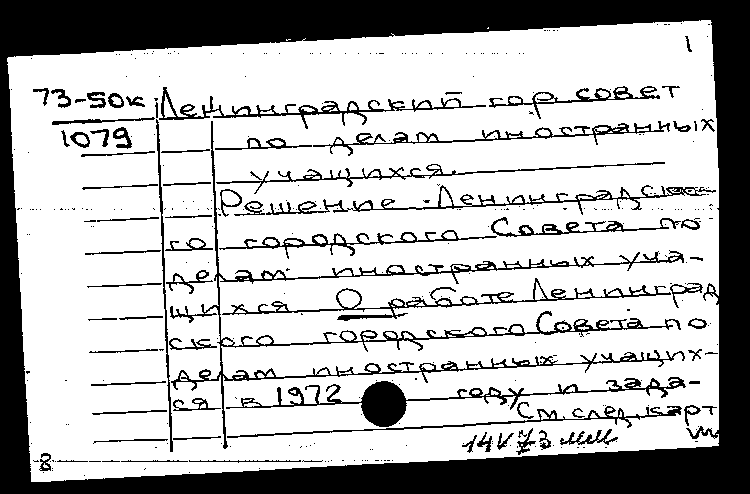 1
73-50к Ленинградский гор. совет
1079 по делам иностранных
учащихся.
Решение Ленинградско-
го городского Совета по
делам иностранных уча-
щихся. О работе Ленинград
ского городского Совета по
делам иностранных учащих-
ся в 1972 году и зада-
См. след. карт
14 V 73
8